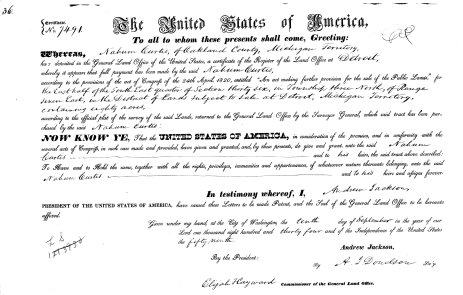 36.
The United States of America,
Certificate
No. 7491.
To all to whom these presents shall come, Greeting:
Whereas, Nahum Curtis, of Oakland County, Michigan Territory,
has deposited in the General Land Office of the United States, a certificate of the Register of the Land Office at Detroit,
whereby it appears that full payment has been made by the said Nahum Curtis,
according to the provisions of the act of Congress of the 24th April, 1820, entitled "An act making further provision for the sale of the Public Lands," for
the East half of the South East quarter of Section thirty six, in Township three North, of Range
seven East, in the District of Lands subject to sale at Detroit, Michigan Territory,
containing eighty acres,
according to the official plat of the survey of the said Lands, returned to the General Land Office by the Surveyor General, which said tract has been purchased by the said Nahum Curtis
NOW KNOW YE, That the UNITED STATES OF AMERICA, in consideration of the premises, and in conformity with the
several acts of Congress, in such case made and provided, have given and granted, and, by these presents, do give and grant, unto the said Nahum
Curtis and to his heirs, the said tract above described:
To Have and to Hold the same, together with all the rights, privileges, immunities and appurtenances, of whatsoever nature thereunto belonging, unto the said
Nahum Curtis and to his heirs and assigns forever.
In testimony whereof, I, Andrew Jackson,
PRESIDENT OF THE UNITED STATES OF AMERICA, have caused these Letters to be made Patent, and the Seal of the General Land Office to be hereunto
affixed.
Given under my hand, at the City of Washington, the tenth day of September in the year of our
Lord one thousand eight hundred and thirty four and of the Independence of the United States
the fifty ninth
Andrew Jackson,
By the President:
By A. J. Donelson Sec'y
Elijah Hayward Commissioner of the General Land Office.